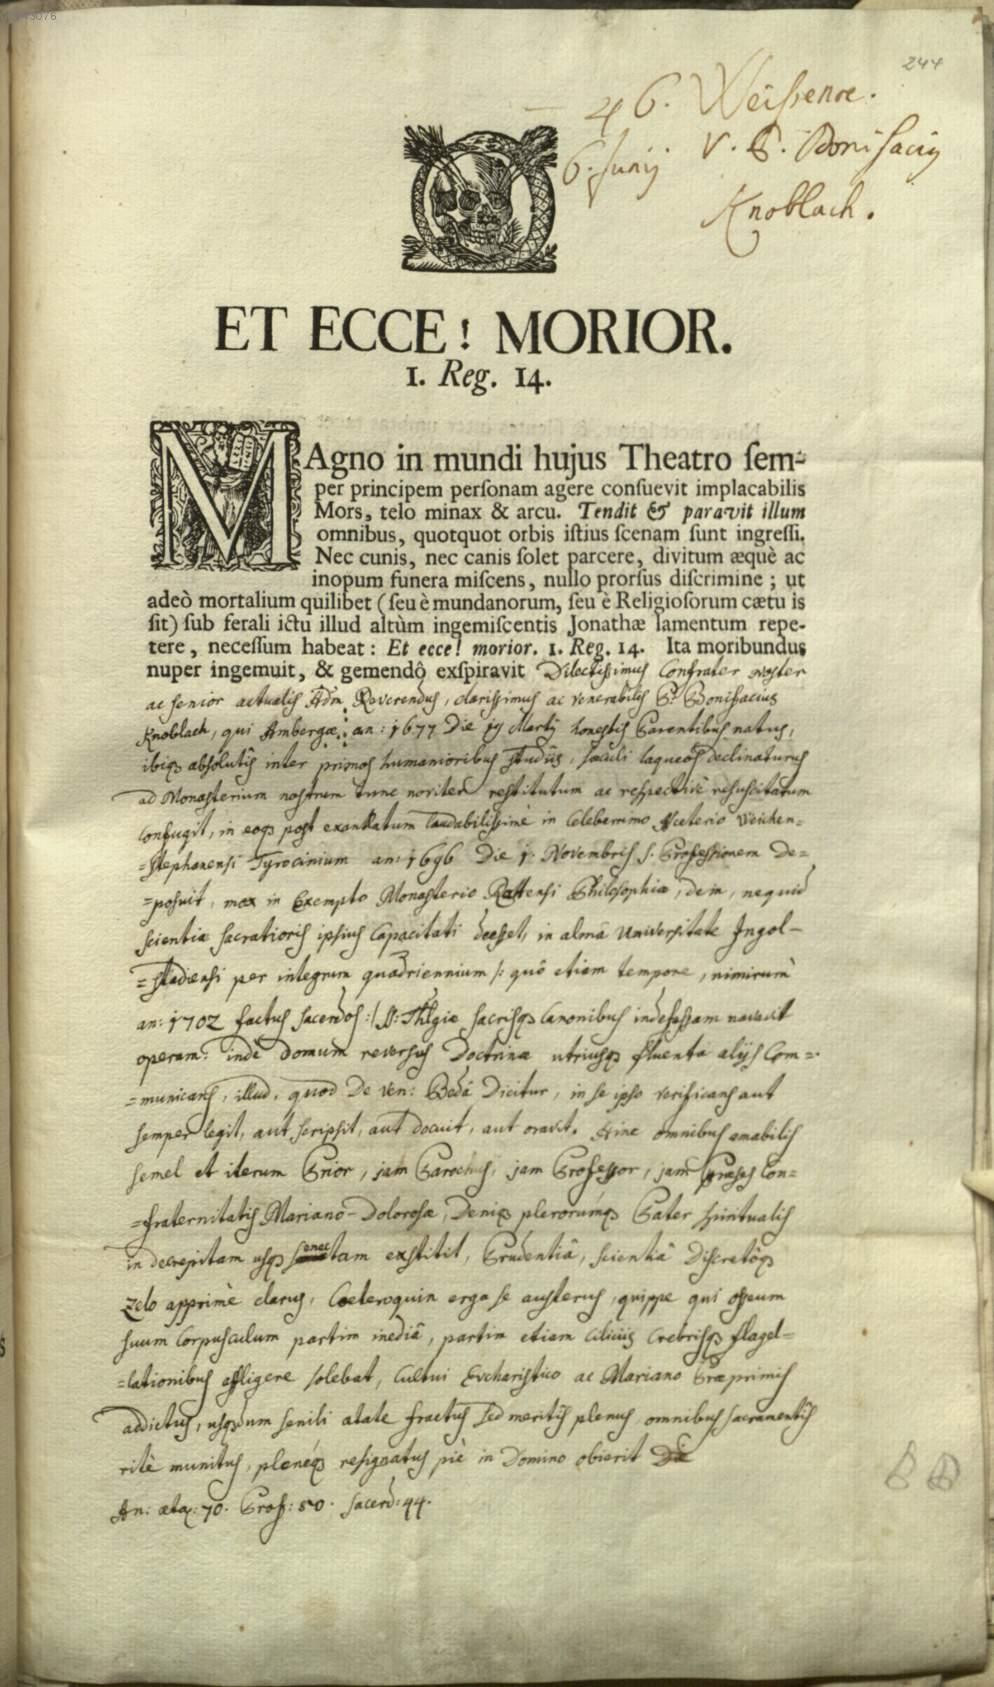 244
46. Weissenoe.
6. Junij V. P. Bonifacij
Knoblach.
ET ECCE! MORIOR.
1. Reg. 14.
MAgno in mundi hujus Theatro ſem-
per principem perſonam agere conſuevit implacabilis
Mors, telo minax & arcu. Tendit & paravit illum
omnibus, quotquot orbis iſtius ſcenam ſunt ingreſſi.
Nec cunis, nec canis ſolet parcere, divitum æquè ac
inopum funera miſcens, nullo prorſus diſcrimine; ut
adeò mortalium quilibet (ſeu è mundanorum, ſeu è Religioſorum cætu is
ſit) ſub ferali ictu illud altùm ingemiſcentis Jonathæ lamentum repe-
tere, neceſſum habeat: Et ecce! morior. 1. Reg. 14. Ita moribundus
nuper ingemuit, & gemendô exſpiravit Dilectissimus Confrater noster
ac senior actualis Adm. Reverendus, clarissimus ac venerabilis P. Bonifacius
Knoblach, qui Ambergæ an: 1677 Die Martij honestis Parentibus natus,
ibiq absolutis inter primos humanioribus studiis, sæculi laqueos declinaturus
ad Monasterium nostrum tunc noviter restitutum ac respectivè resuscitatum
confugit, in eoq post exantlatum laudabilissimè in celeberrimo Asceterio Weichen=
=stephanensi Tyrocinium an: 1696 Die 1. Novembris S. Professionem De=
=posuit, mox in Exempto Monasterio Philosophiæ, dein, nequid
scientiæ sacratioris ipsius Capacitati deesset, in almâ Universitate Ingol-
=stadiensi per integrum quadriennium /: quô etiam tempore, nimirum
an: 1702 factus sacerdos :/ SS: Thlgiæ sacrisq Canonibus indefessam navavit
operam: indè domum reversus Doctrinæ utriusq fluenta alijs Com=
=municans, illud, quod De Ven: Bedâ Dicitur, in se ipso verificans aut
semper legit, aut scripsit, aut docuit, aut oravit. Hinc omnibus amabilis
semel et iterum Prior, jam Parochus, jam Professor, jam Præses Con=
=fraternitatis Mariano-Dolorosæ, Deniq plerorumq Pater spiritualis
in decrepitam usq senectam exstitit, Prudentiâ, scientiâ Discretôq
Zelo apprimè clarus, Cœteroquin erga se austerus, quippe qui osseum
suum Corpusculum partim inediâ, partim etiam ciliciis Crebrisq flagel=
=lationibus affligere solebat, Cultui Eucharistico ac Mariano Præprimis
addictus, usqdum senili ætate fractus sed meritis plenus omnibus sacramentis
ritè munitus, plenéq resignatus piè in Domino obierit
An: æta: 70. Prof: 50. Sacerd: 44.